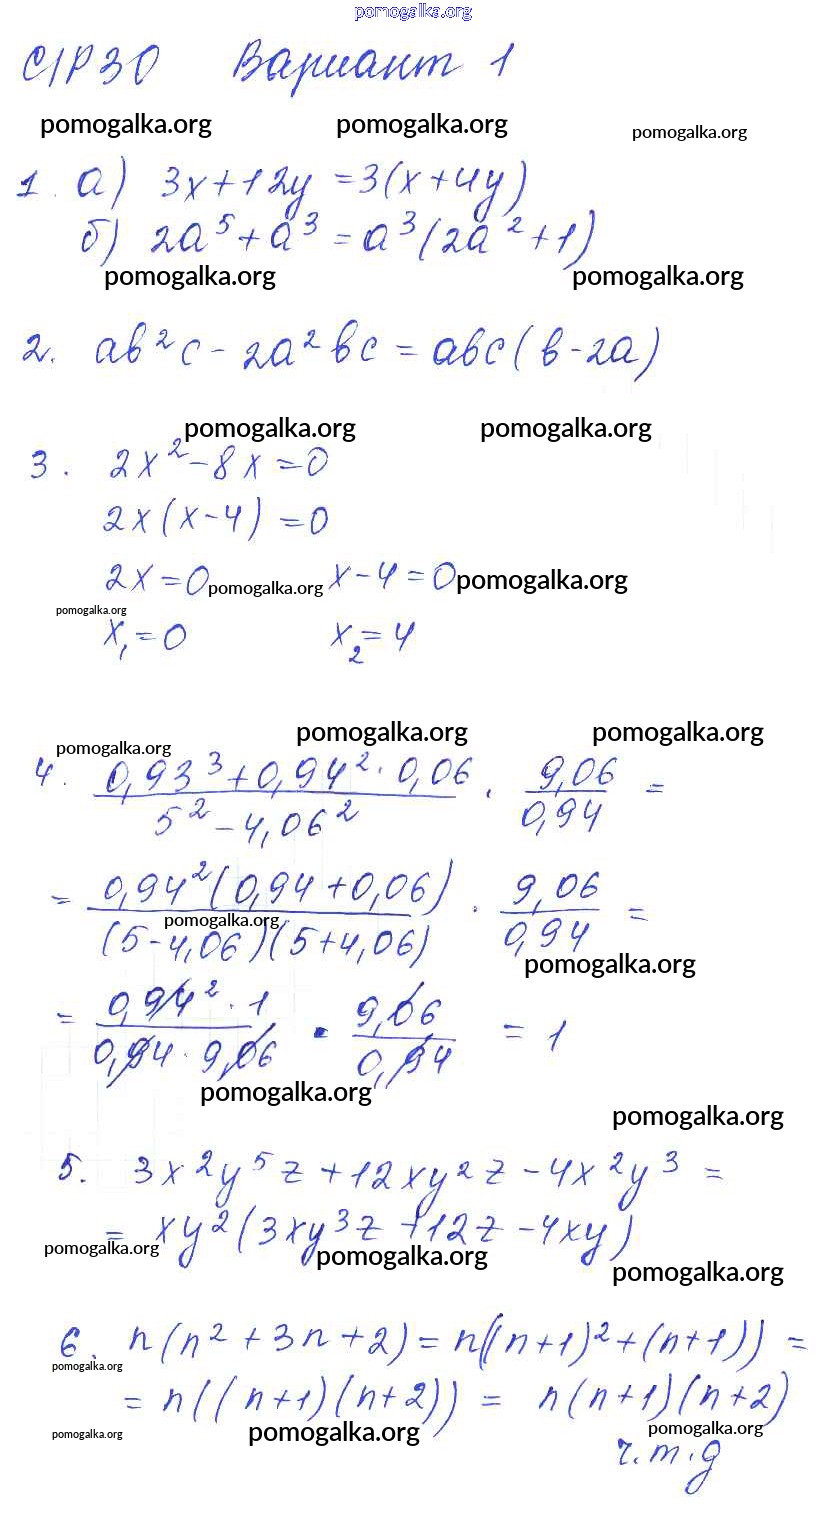 pomogalka.org
С/Р 30 Вариант 1
pomogalka.org pomogalka.org pomogalka.org
1. а) 3x+12y =3(x+4y)
б) 2a⁵+a³ = a³(2a²+1)
pomogalka.org pomogalka.org
2. ab²c - 2a²bc = abc(b-2a)
pomogalka.org pomogalka.org
3. 2x²-8x=0
2x(x-4)=0
2x=0 pomogalka.org x-4=0 pomogalka.org
pomogalka.org
x₁=0 x₂=4
pomogalka.org pomogalka.org
pomogalka.org
4. (0,93³+0,94²·0,06)/(5²-4,06²) · 9,06/0,94 =
= (0,94²(0,94+0,06))/((5-4,06)(5+4,06)) · 9,06/0,94 =
pomogalka.org
pomogalka.org
= (0,94²·1)/(0,94·9,06) · 9,06/0,94 = 1
pomogalka.org
pomogalka.org
5. 3x²y⁵z+12xy²z-4x²y³ =
= xy²(3xy³z+12z-4xy)
pomogalka.org pomogalka.org
pomogalka.org
6. n(n²+3n+2)=n((n+1)²+(n+1)) =
pomogalka.org
= n((n+1)(n+2)) = n(n+1)(n+2)
pomogalka.org pomogalka.org pomogalka.org
ч.т.д